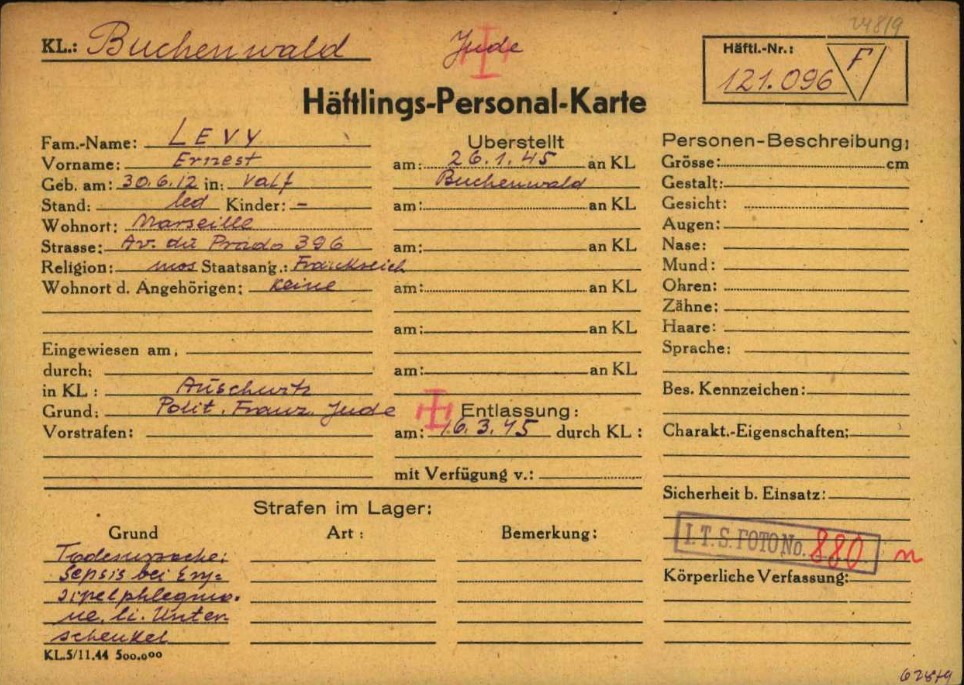 24819
KL.: Buchenwald
Jude
Häftl.-Nr.:
121.096
F
Häftlings-Personal-Karte
Fam.-Name: LEVY
Vorname: Ernest
Geb. am: 30.6.12 in: Valf
Stand: led Kinder: -
Wohnort: Marseille
Strasse: Av. du Prado 396
Religion: mos Staatsang.: Frankreich
Wohnort d. Angehörigen: keine
Eingewiesen am.
durch:
in KL : Auschwitz
Grund: Polit. Franz. Jude
Vorstrafen:
Uberstellt
am: 26.1.45 an KL
Buchenwald
am: an KL
am: an KL
am: an KL
am: an KL
am: an KL
Entlassung:
am: 16.3.45 durch KL :
mit Verfügung v.:
Personen-Beschreibung:
Grösse: cm
Gestalt:
Gesicht:
Augen:
Nase:
Mund:
Ohren:
Zähne:
Haare:
Sprache:
Bes. Kennzeichen:
Charakt.-Eigenschaften:
Sicherheit b. Einsatz:
I.T.S. FOTO No. 880 n
Körperliche Verfassung:
Strafen im Lager:
Grund Art : Bemerkung:
Todesursache:
Sepsis bei Ery-
sipelphlegmo-
ne. li. Unter
schenkel
KL.5/11.44 500.000